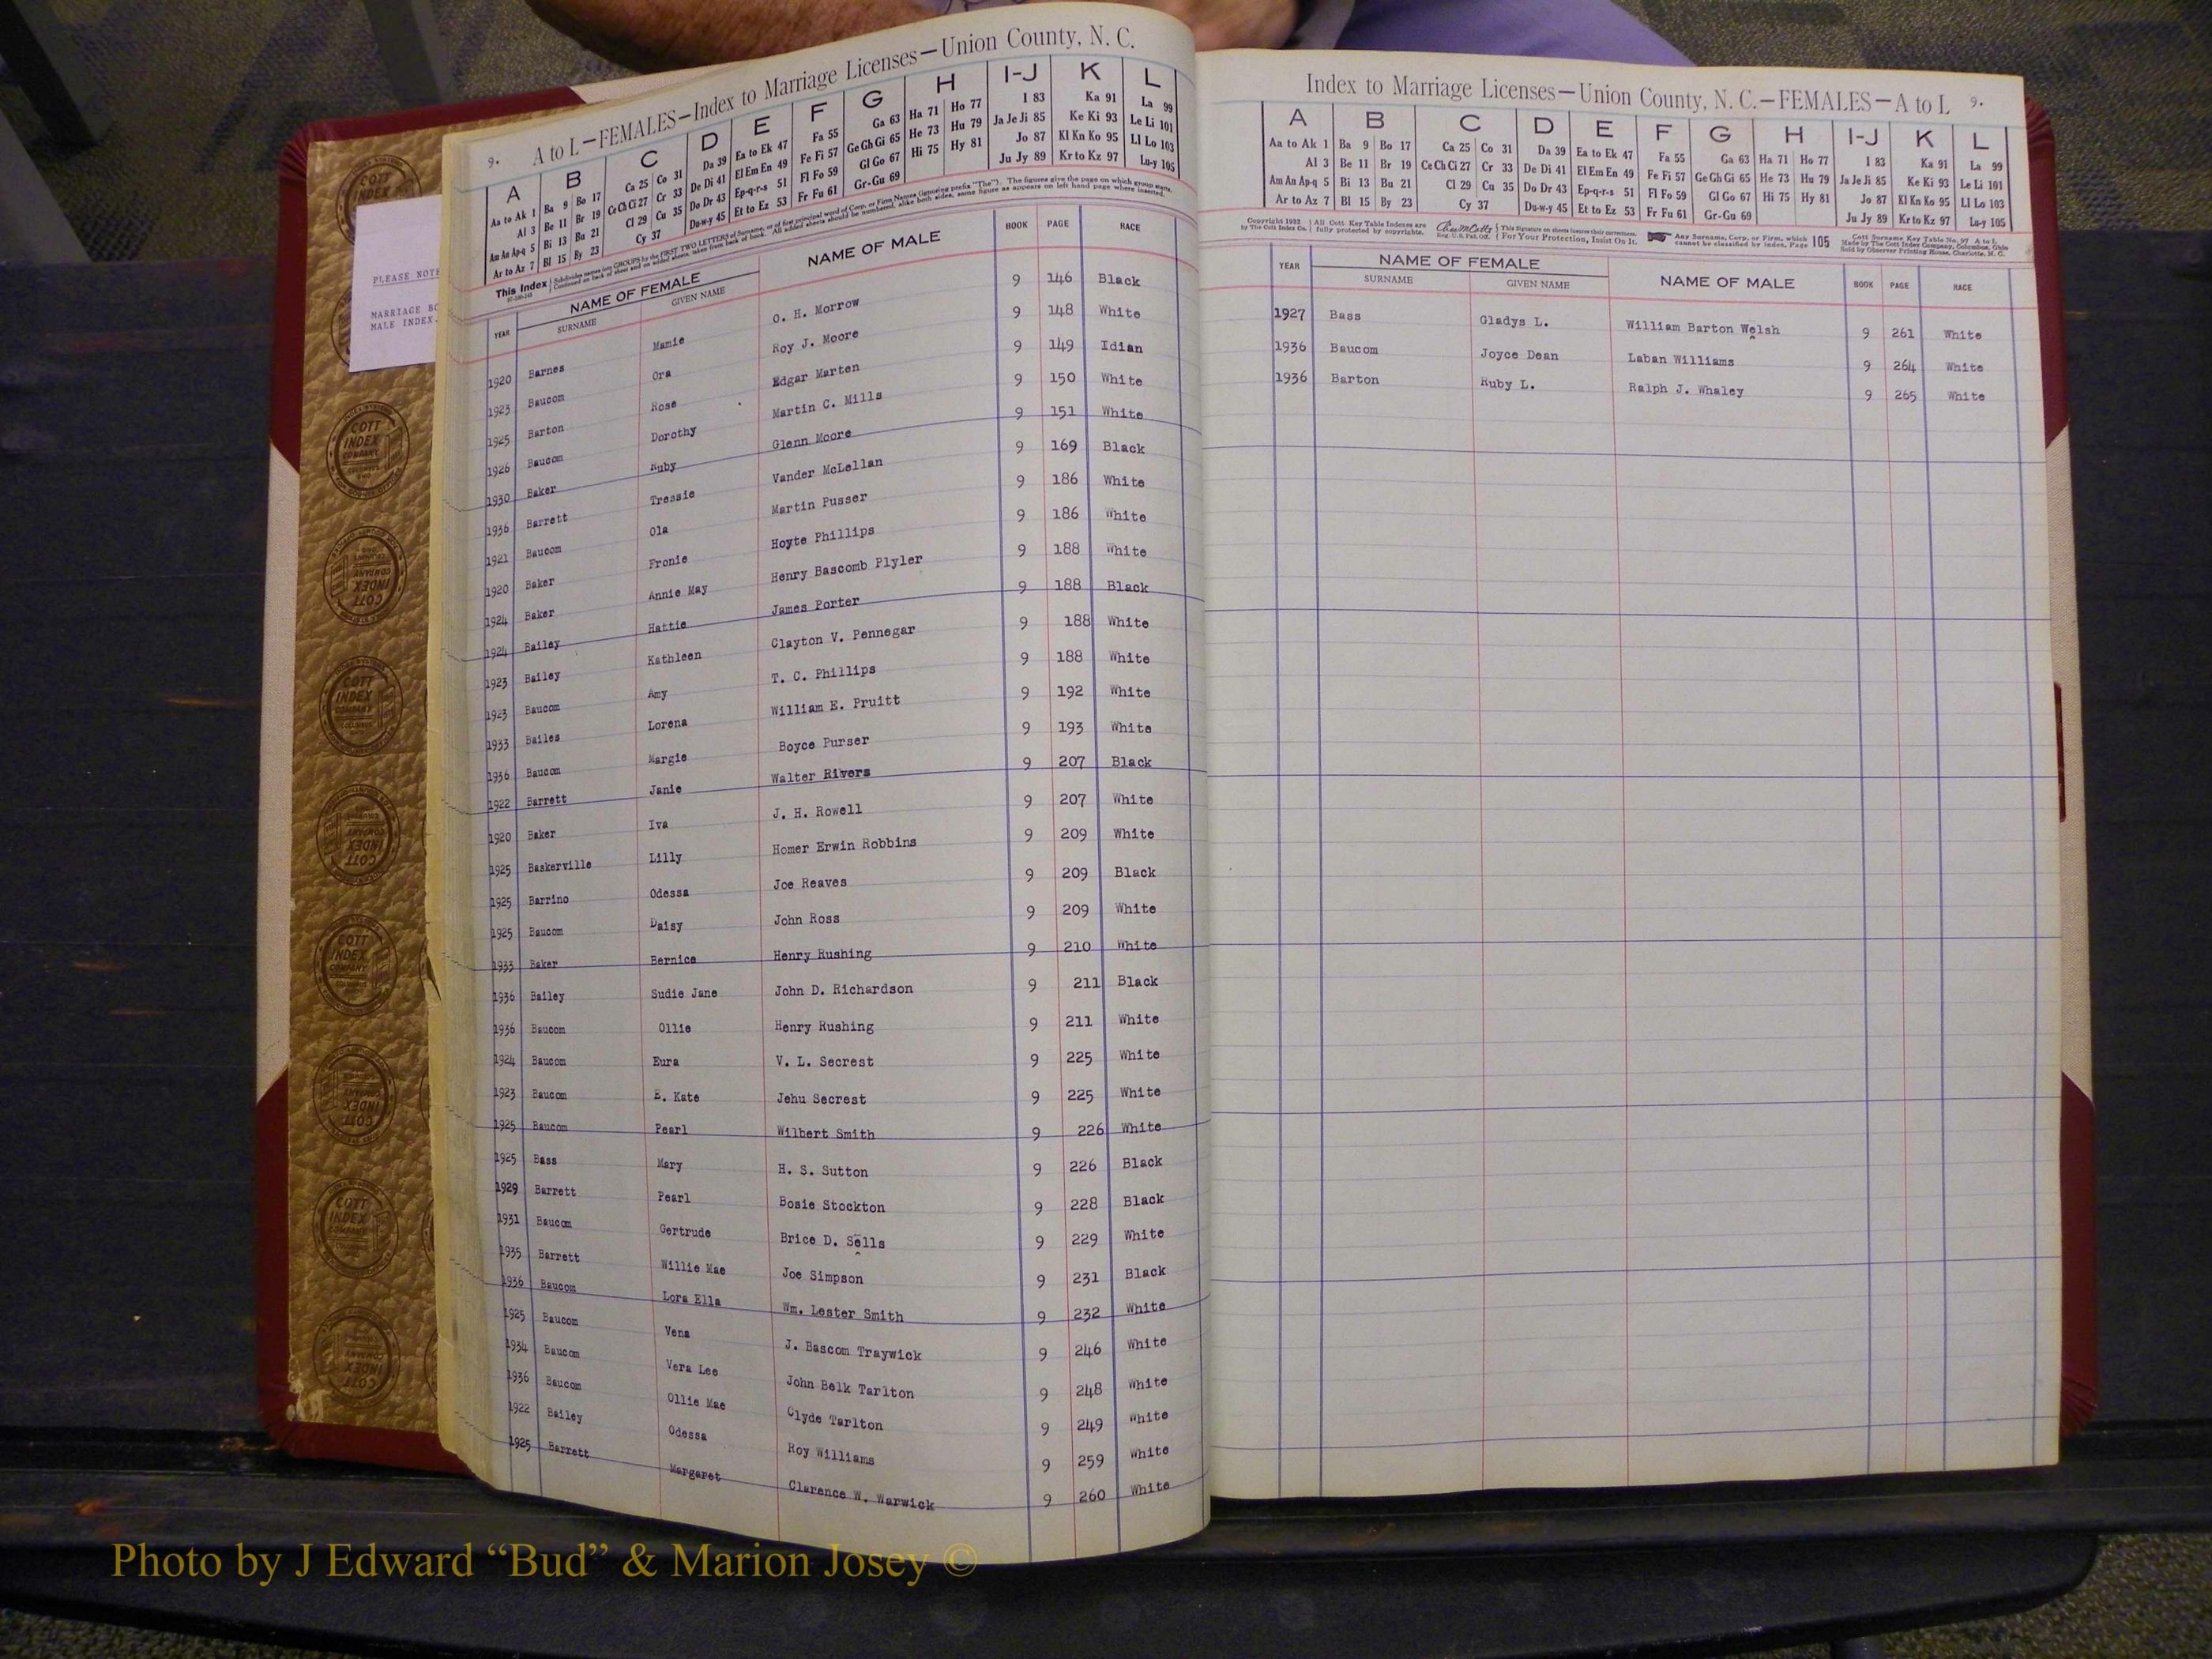 PLEASE NOTE
MARRIAGE BO
MALE INDEX.
9. A to L—FEMALES—Index to Marriage Licenses—Union County, N. C.
A B C D E F G H I-J K L
Aa to Ak 1 Ba 9 Bo 17 Ca 25 Co 31 Da 39 Ea to Ek 47 Fa 55 Ga 63 Ha 71 Ho 77 I 83 Ka 91 La 99
Al 3 Be 11 Br 19 Ce Ch Ci 27 Cr 33 De Di 41 El Em En 49 Fe Fi 57 Ge Gh Gi 65 He 73 Hu 79 Ja Je Ji 85 Ke Ki 93 Le Li 101
Am An Ap-q 5 Bi 13 Bu 21 Cl 29 Cu 35 Do Dr 43 Ep-q-r-s 51 Fl Fo 59 Gl Go 67 Hi 75 Hy 81 Jo 87 Kl Kn Ko 95 Ll Lo 103
Ar to Az 7 Bl 15 By 23 Cy 37 Du-w-y 45 Et to Ez 53 Fr Fu 61 Gr-Gu 69 Ju Jy 89 Kr to Kz 97 Lu-y 105
This Index Subdivides names into GROUPS by the FIRST TWO LETTERS of Surname, or of first principal word of Corp. or Firm Names (ignoring prefix "The"). The figures give the page on which group starts.
Continued on back of sheet and on added sheets, taken from back of book. All added sheets should be numbered, alike both sides, same figure as appears on left hand page where inserted.
YEAR NAME OF FEMALE SURNAME GIVEN NAME NAME OF MALE BOOK PAGE RACE
1920 Barnes Mamie O. H. Morrow 9 146 Black
1923 Baucom Ora Roy J. Moore 9 148 White
1925 Barton Rose Edgar Marten 9 149 Idian
1926 Baucom Dorothy Martin C. Mills 9 150 White
1930 Baker Ruby Glenn Moore 9 151 White
1936 Barrett Tressie Vander McLellan 9 169 Black
1921 Baucom Ola Martin Pusser 9 186 White
1920 Baker Fronie Hoyte Phillips 9 186 White
1924 Baker Annie May Henry Bascomb Plyler 9 188 White
1924 Bailey Hattie James Porter 9 188 Black
1923 Bailey Kathleen Clayton V. Pennegar 9 188 White
1923 Baucom Amy T. C. Phillips 9 188 White
1933 Bailes Lorena William E. Pruitt 9 192 White
1936 Baucom Margie Boyce Purser 9 193 White
1922 Barrett Janie Walter Rivers 9 207 Black
1920 Baker Iva J. H. Rowell 9 207 White
1925 Baskerville Lilly Homer Erwin Robbins 9 209 White
1925 Barrino Odessa Joe Reaves 9 209 Black
1925 Baucom Daisy John Ross 9 209 White
1933 Baker Bernice Henry Rushing 9 210 White
1936 Bailey Sudie Jane John D. Richardson 9 211 Black
1936 Baucom Ollie Henry Rushing 9 211 White
1924 Baucom Eura V. L. Secrest 9 225 White
1923 Baucom E. Kate Jehu Secrest 9 225 White
1925 Baucom Pearl Wilbert Smith 9 226 White
1925 Bass Mary H. S. Sutton 9 226 Black
1929 Barrett Pearl Bosie Stockton 9 228 Black
1931 Baucom Gertrude Brice D. Sells 9 229 White
1935 Barrett Willie Mae Joe Simpson 9 231 Black
1936 Baucom Lora Ella Wm. Lester Smith 9 232 White
1925 Baucom Vena J. Bascom Traywick 9 246 White
1934 Baucom Vera Lee John Belk Tarlton 9 248 White
1936 Baucom Ollie Mae Clyde Tarlton 9 249 White
1922 Bailey Odessa Roy Williams 9 259 White
1925 Barrett Margaret Clarence W. Warwick 9 260 White
Index to Marriage Licenses—Union County, N. C.—FEMALES—A to L 9.
A B C D E F G H I-J K L
Aa to Ak 1 Ba 9 Bo 17 Ca 25 Co 31 Da 39 Ea to Ek 47 Fa 55 Ga 63 Ha 71 Ho 77 I 83 Ka 91 La 99
Al 3 Be 11 Br 19 Ce Ch Ci 27 Cr 33 De Di 41 El Em En 49 Fe Fi 57 Ge Gh Gi 65 He 73 Hu 79 Ja Je Ji 85 Ke Ki 93 Le Li 101
Am An Ap-q 5 Bi 13 Bu 21 Cl 29 Cu 35 Do Dr 43 Ep-q-r-s 51 Fl Fo 59 Gl Go 67 Hi 75 Hy 81 Jo 87 Kl Kn Ko 95 Ll Lo 103
Ar to Az 7 Bl 15 By 23 Cy 37 Du-w-y 45 Et to Ez 53 Fr Fu 61 Gr-Gu 69 Ju Jy 89 Kr to Kz 97 Lu-y 105
Copyright 1932 by The Cott Index Co. All Cott Key Table Indexes are fully protected by copyrights. Reg. U.S. Pat. Off. This Signature on sheets insures their correctness. For Your Protection, Insist On It. Any Surname, Corp. or Firm, which cannot be classified by index, Page 105 Cott Surname Key Table No. 97 A to L Made by The Cott Index Company, Columbus, Ohio Sold by Observer Printing House, Charlotte, N. C.
YEAR NAME OF FEMALE SURNAME GIVEN NAME NAME OF MALE BOOK PAGE RACE
1927 Bass Gladys L. William Barton Welsh 9 261 White
1936 Baucom Joyce Dean Laban Williams 9 264 White
1936 Barton Ruby L. Ralph J. Whaley 9 265 White
COTT INDEX COMPANY
Photo by J Edward “Bud” & Marion Josey ©